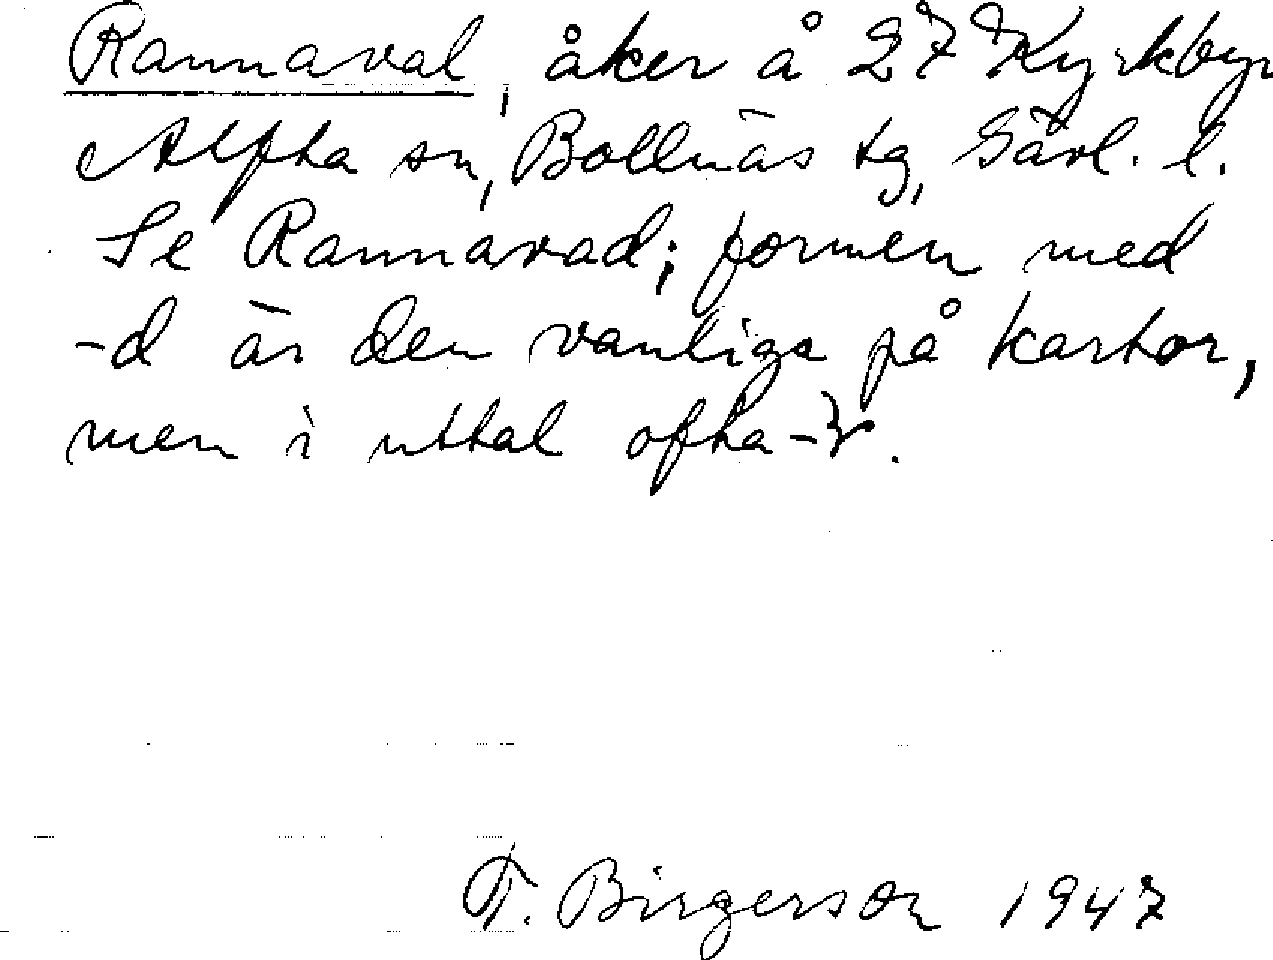 Rannaval, åker å 27 Kyrkbyn
Alfta sn, Bollnäs tg, Gävl. l.
Se Rannavad; formen med
-d är den vanliga på kartor,
men i uttal ofta
T. Birgerson 1947